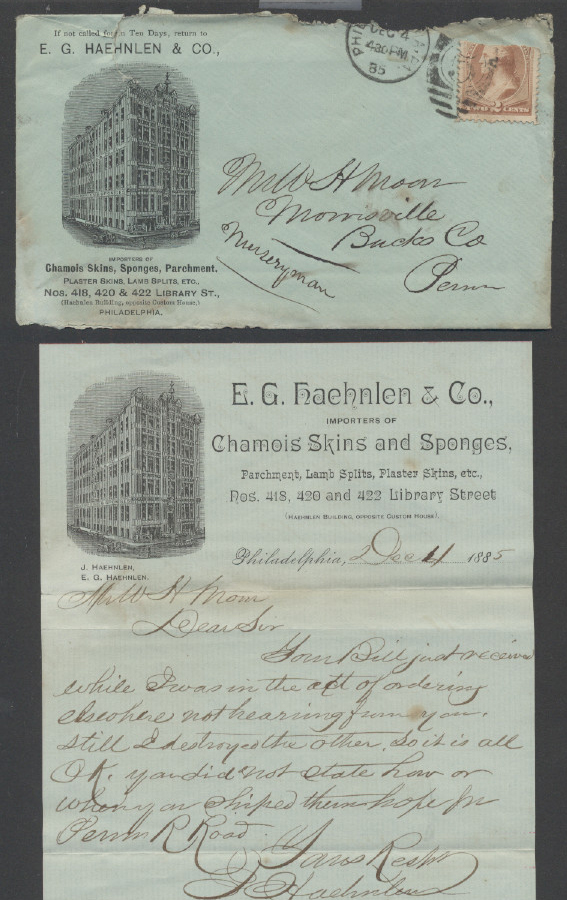 If not called for in Ten Days, return to
E. G. HAEHNLEN & CO.,
DEC 4
430PM
85
TWO 2 CENTS
Mr W H Moon
Morrisville
Bucks Co
Penn
Nurseryman
IMPORTERS OF
Chamois Skins, Sponges, Parchment.
PLASTER SKINS, LAMB SPLITS, ETC.,
NOS. 418, 420 & 422 LIBRARY ST.,
(Haehnlen Building, opposite Custom House.)
PHILADELPHIA.
E. G. Haehnlen & Co.,
IMPORTERS OF
Chamois Skins and Sponges,
Parchment, Lamb Splits, Plaster Skins, etc.,
Nos. 418, 420 and 422 Library Street
(HAEHNLEN BUILDING, OPPOSITE CUSTOM HOUSE).
J. HAEHNLEN,
E. G. HAEHNLEN.
Philadelphia, Dec 4 1885
Mr W H Moon
Dear Sir
Your Bill just received
while I was in the act of ordering
elsewhere not hearing from you.
still I destroyed the other. so it is all
OK. you did not state how or
when you shiped them hope per
Penn R Road
Yours Respt
J Haehnlen